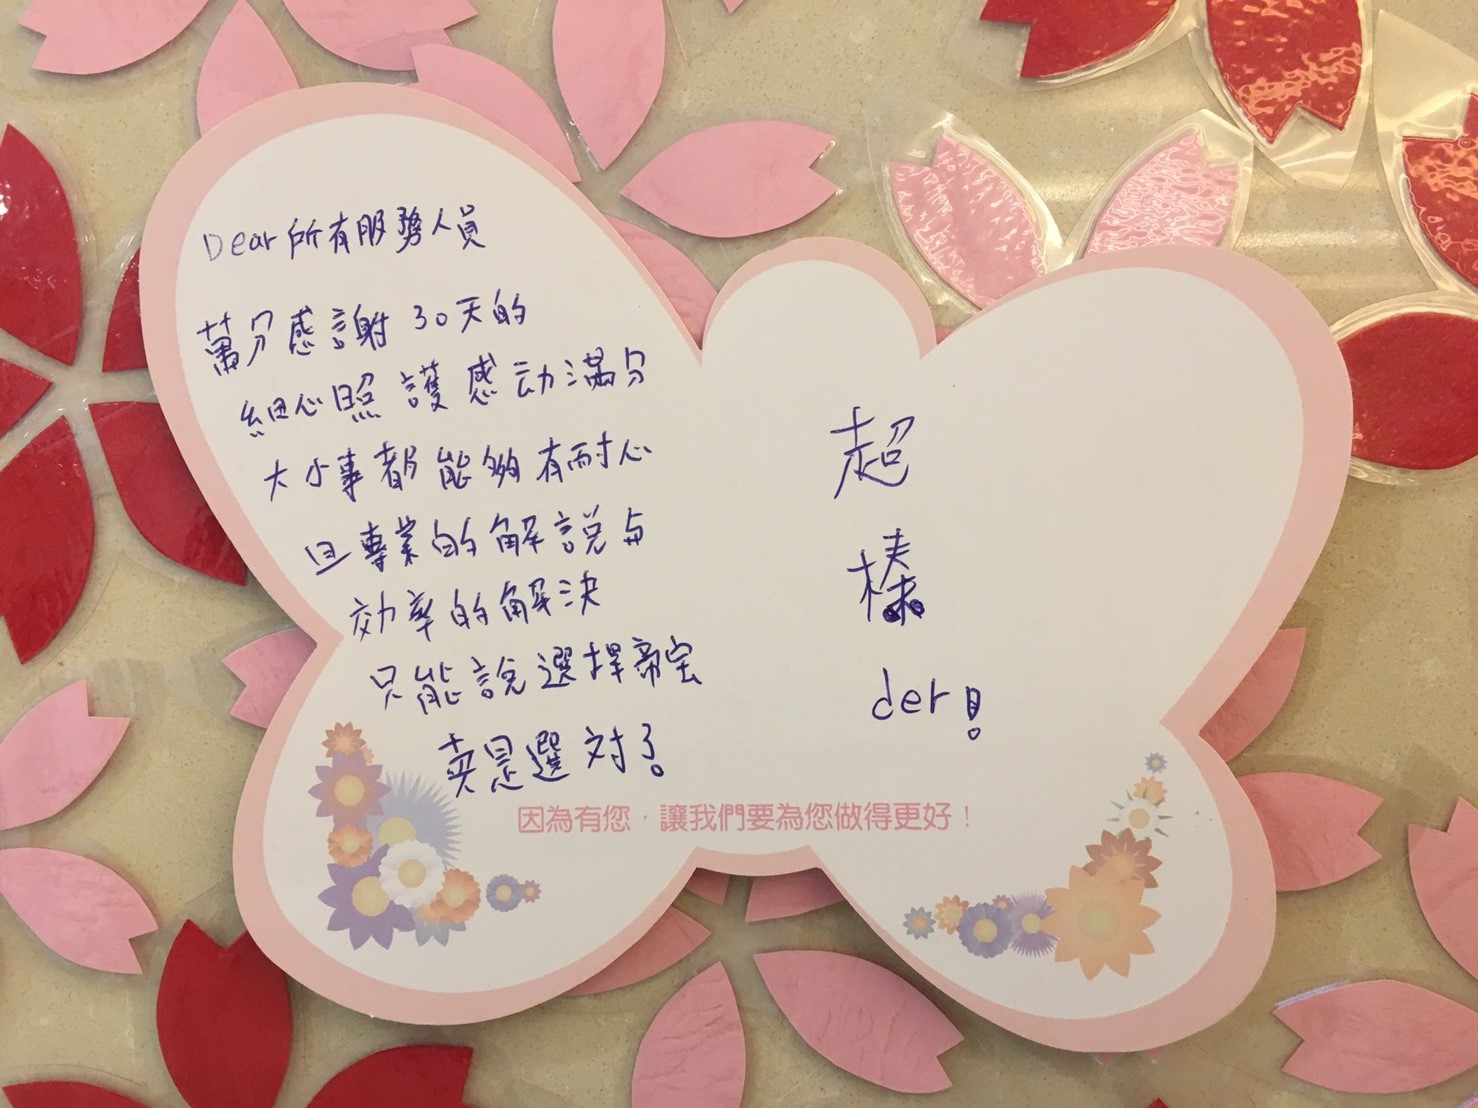 Dear 所有服務人員
萬分感謝 30天的
細心照護感动滿分
大小事都能夠有耐心
且專業的解說与
効率的解決
只能說選擇帝宝
真是選对了。
超
榛
der!
因為有您,讓我們要為您做得更好!